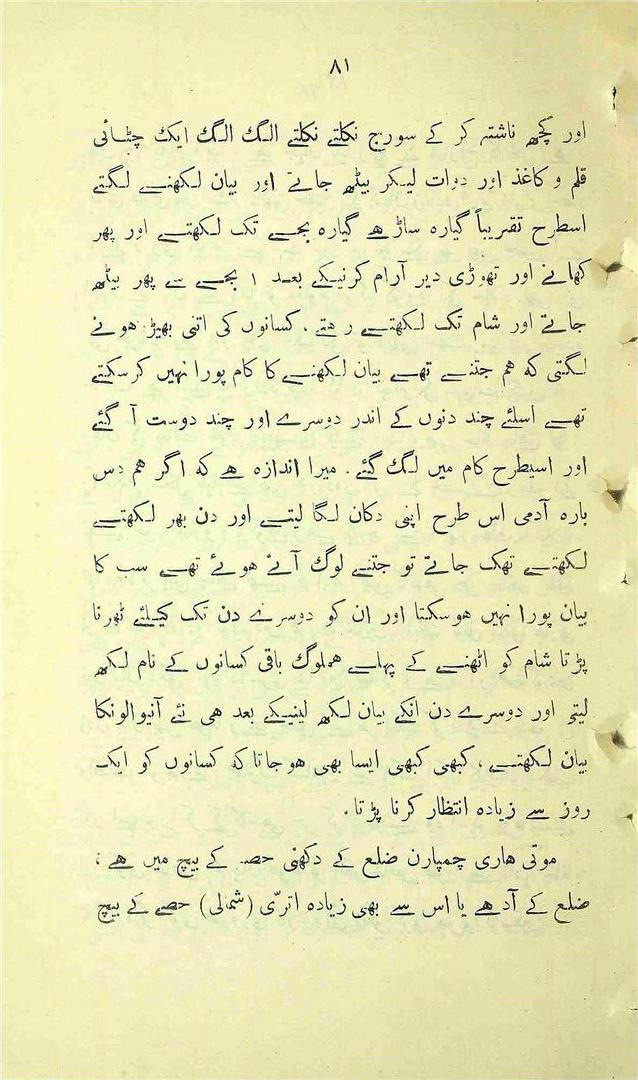 ۸۱
اور کچھ ناشتہ کر کے سورج نکلتے نکلتے الگ الگ ایک چٹائی
قلم و کاغذ اور دوات لیکر بیٹھ جاتے اور بیان لکھنے لگتے
اسطرح تقریباً گیارہ ساڑھے گیارہ بجے تک لکھتے اور پھر
کھانے اور تھوڑی دیر آرام کرنیکے بعد ۱ بجے سے پھر بیٹھ
جاتے اور شام تک لکھتے رہتے ۔ کسانوں کی اتنی بھیڑ ہونے
لگتی کہ ہم جتنے تھے بیان لکھنے کا کام پورا نہیں کرسکتے
تھے اسلئے چند دنوں کے اندر دوسرے اور چند دوست آ گئے
اور اسیطرح کام میں لگ گئے ۔ میرا اندازہ ہے کہ اگر ہم دس
بارہ آدمی اس طرح اپنی دکان لگا لیتے اور دن بھر لکھتے
لکھتے تھک جاتے تو جتنے لوگ آئے ہوئے تھے سب کا
بیان پورا نہیں ہوسکتا اور ان کو دوسرے دن تک کیلئے ٹھرنا
پڑتا شام کو اٹھنے کے پہلے ہملوگ باقی کسانوں کے نام لکھ
لیتے اور دوسرے دن انکے بیان لکھ لینیکے بعد ہی نئے آنیوالونکا
بیان لکھتے ، کبھی کبھی ایسا بھی ہوجاتا کہ کسانوں کو ایک
روز سے زیادہ انتظار کرنا پڑتا ۔
موتی ہاری چمپارن ضلع کے دکھنی حصہ کے بیچ میں ہے ،
ضلع کے آدھے یا اس سے بھی زیادہ اترّی (شمالی) حصے کے بیچ